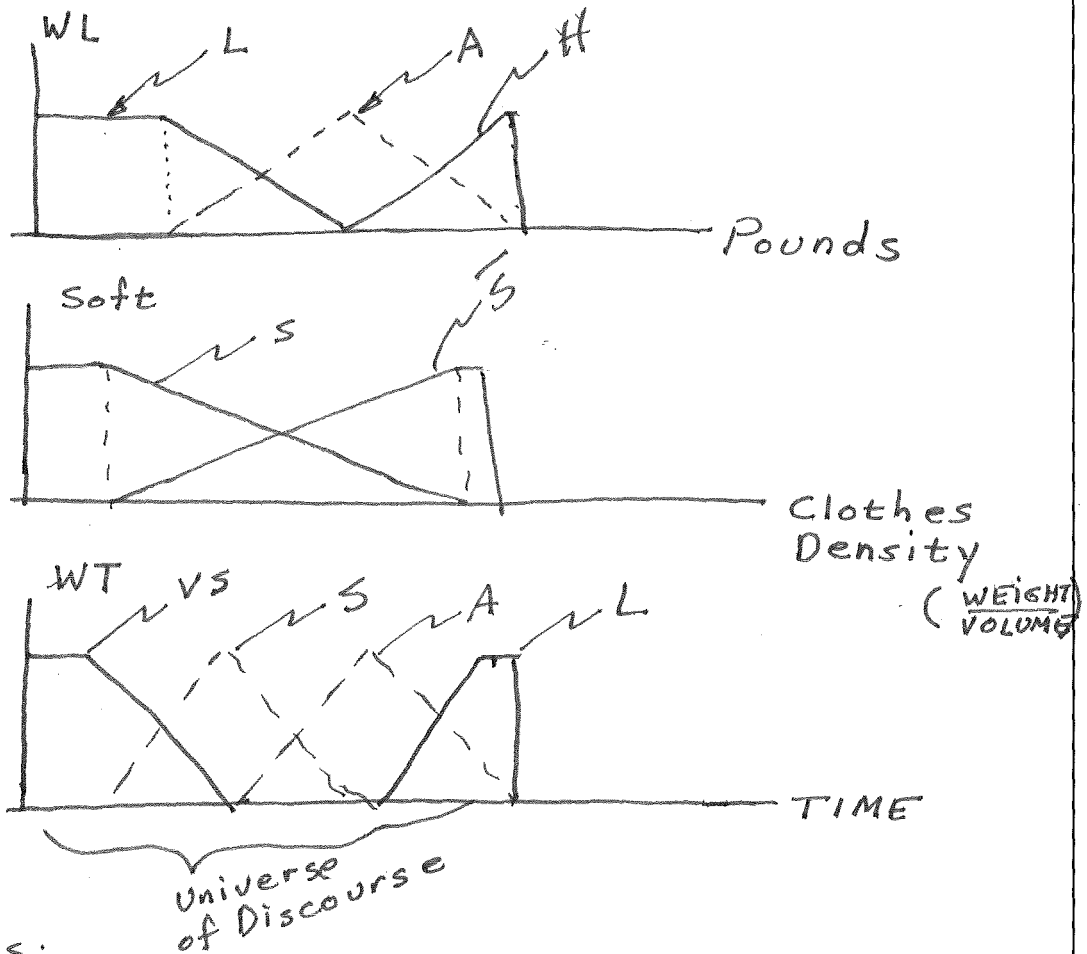 WL
L
A
H
Pounds
Soft
S
S̄
Clothes
Density
(WEIGHT
VOLUME)
WT
VS
S
A
L
TIME
Universe
of Discourse
s.